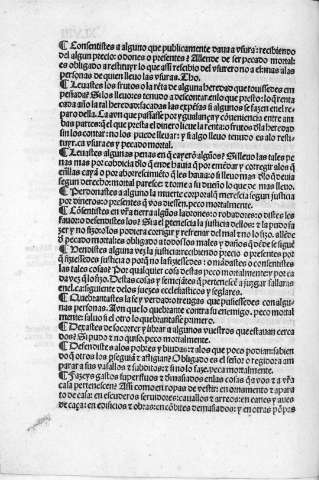 ¶ Consentistes a alguno que publicamente daua a vsura: recibiendo
del algun precio: o dones o presentes? Allende de ser pecado mortal:
es obligado a restituyr lo que assi rescibio del vsurero no a el: mas a las
personas de quien lleuo las vsuras. Tho.
¶ Leuastes los frutos o la reta de alguna heredad que touissedes em
peñada? Si los lleuo: es tenudo a descontar en lo que presto: lo q̃ renta
cada año la tal heredad: sacadas las expẽsas si algunas se fazen en el re
paro della. Ca avn que passasse por ygualança y cõueniencia entre am
bas partes: q̃ el que presta el dinero lleue la renta: o frutos dla heredad
sin los contar: no los puede lleuar: y si algo lleuo tenudo es a lo resti
tuyr. ca vsura es y pecado mortal.
¶ Leuastes algunas penas en q̃ cayerõ algũos? Si lleuo las tales pe
nas mas por cobdicia dlo q̃ ende hauia q̃ por enmẽdar y corregir a los q̃
en ellas cayã o por aborrecimiẽto q̃ les haura: o si lleuo mas dlo q̃ deuia
segun derecho: mortal paresce: z torne a su dueño lo que de mas lleuo.
¶ Perdonastes a alguno la muerte corporal q̃ merecia segun justicia
por dineros: o presentes q̃ vos diessen. peco mortalmente.
¶ Cõsentistes en vr̃a tierra algũos ladrones: o robadores: o distes les
fauor: o defendistes los? Si a el pertenecia la justicia dellos: z la pudo fa
zer y no fizo: z los podiera corrigir y refrenar del mal z no lo fizo. allẽde
ᵭ pecado mortal: es obligado a todos los males y daños q̃ dẽde se sigue
¶ Vendistes alguna vez la justicia: recibiendo precio o presentes por
q̃ fiziessedes justicia o porq̃ no la fiziessedes: o mãdastes o consentistes
las tales cosas? Por qualquier cosa destas peco mortalmente: y por ca
da vez q̃ lo fizo. Destas cosas y semejãtes q̃ pertenescẽ a juzgar fallaras
en el. ca. siguiente de los juezes ecclesiasticos y seglares.
¶ Quebrantastes la fe y verdad: o treguas que pusiessedes con algu-
nas personas. Avn que lo quebrante contra su enemigo. peco mortal
mente: saluo si el otro lo quebrantasse primero.
¶ Dexastes de socorrer y librar a algunos vuestros que estauan cerca
dos? Si pudo z no quiso. peco mortalmente.
¶ Defendiste a los pobres y biudas: z a los que poco podian: sabien
do q̃ otros los perseguiã z afligian? Obligado es el señor o regidor a am
parar a sus vasallos z subditos: z si no lo faze. peca mortalmente.
¶ Fazeys gastos superfluos z dmasiados en las cosas q̃ a vos z a vr̃a
casa pertenescen? Assi como en ropas de vestir: en ornamento z aparato
de casa: en escuderos seruidores: cauallos z arreos: en canes y aues
de caça: en edificios z obras: en cõbites demasiados: y en otras põpas